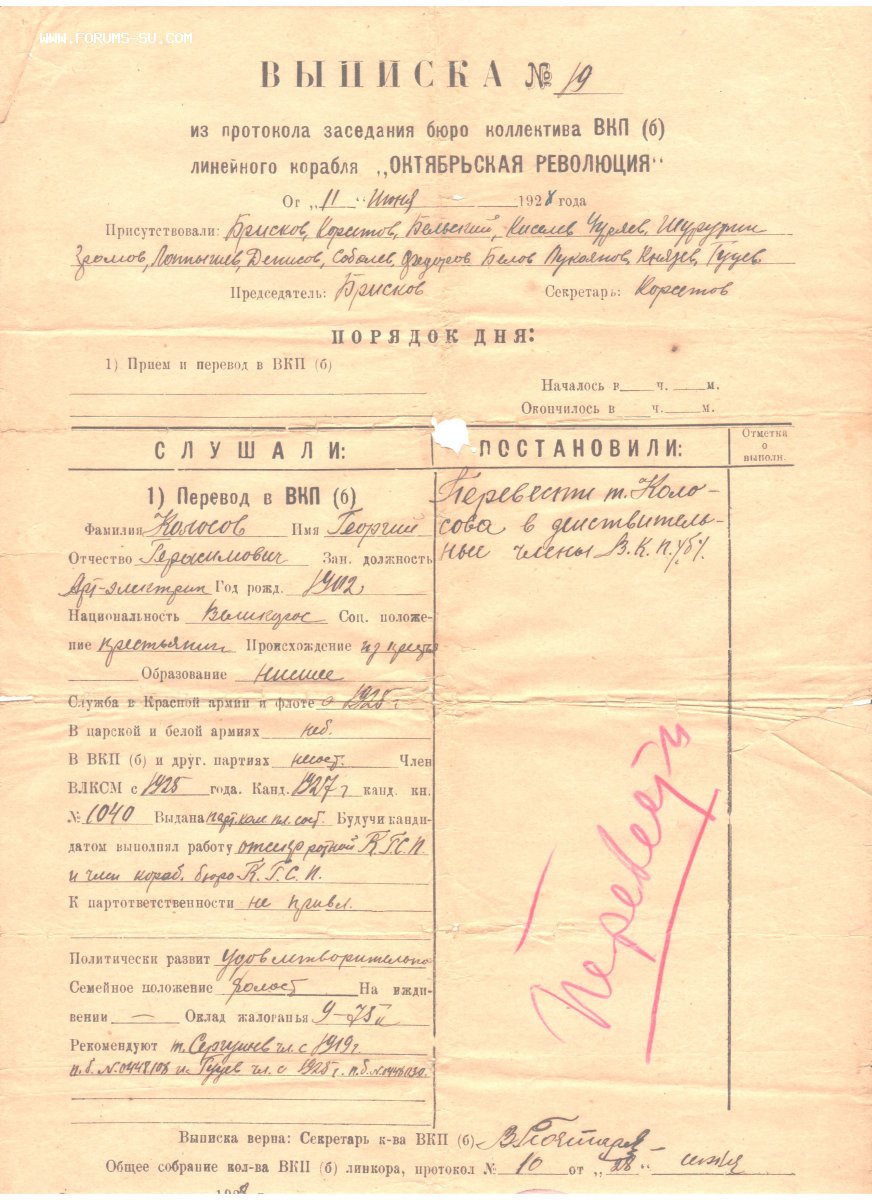 WWW.FORUMS-SU.COM
ВЫПИСКА № 19
из протокола заседания бюро коллектива ВКП (б)
линейного корабля „ОКТЯБРЬСКАЯ РЕВОЛЮЦИЯ“
От „11“ Июня 1928 года
Присутствовали: Брисков, Корсетов, Бельский, Киселев, Чуряев,
Громов, Латышев, Денисов, Соболев, Федоров, Белов, Лукоянов, Князев, Гущев.
Председатель: Брисков Секретарь: Корсетов
ПОРЯДОК ДНЯ:
1) Прием и перевод в ВКП (б)
Началось в ч. м.
Окончилось в ч. м.
СЛУШАЛИ:
1) Перевод в ВКП (б)
Фамилия Колосов Имя Георгий
Отчество Герасимович Зан. должность
Арт-электрик Год рожд. 1902
Национальность Великорос Соц. положе-
ние крестьянин Происхождение из
Образование низшее
Служба в Красной армии и флоте с 1925 г
В царской и белой армиях не б.
В ВКП (б) и друг. партиях не сост. Член
ВЛКСМ с 1925 года. Канд. 1927 г канд. кн.
№ 1040 Выдана Будучи канди-
датом выполнял работу отсекр ротной К.П.С.П.
и член кораб. бюро
К партответственности не привл.
Политически развит удовлетворительно
Семейное положение холост На ижди-
вении — Оклад жалованья 9-75 к
Рекомендуют т. чл. с 1919 г.
п.б. № 0448108 и Гущев чл. с 1925 г. п.б. №
ПОСТАНОВИЛИ:
Перевести т. Коло-
сова в действитель-
ные члены В.К.П. /б/.
Отметка
о
выполн.
Перевести
Выписка верна: Секретарь к-ва ВКП (б)
Общее собрание кол-ва ВКП (б) линкора, протокол № 10 от „28“ июня